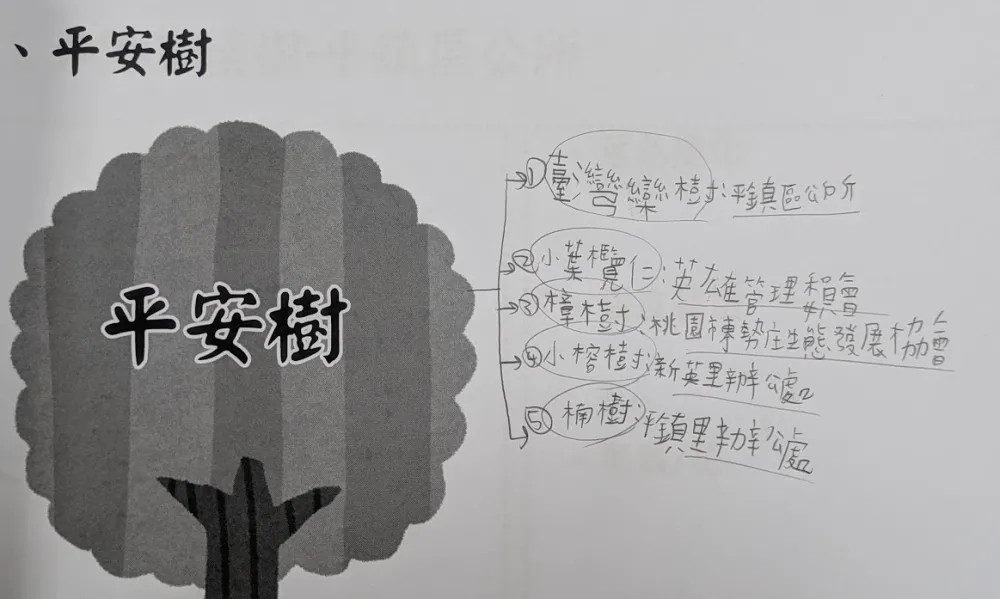 、平安樹
平安樹
①臺灣欒樹:平鎮區公所
②小葉欖仁:英雄管理 會
③樟樹:桃園東勢庄生態發展協會
④小榕樹:新英里辦公處
⑤楠樹:平鎮里辦公處